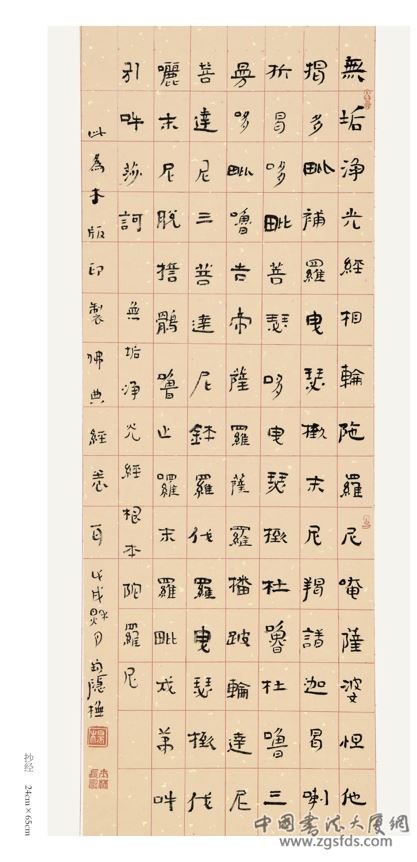 無垢浄光經相輪陁羅尼唵薩婆怛他
揭多毗補羅曳瑟撖末尼羯諸迦曷喇
折曷哆毗菩瑟哆曳瑟撖杜嚕杜嚕三
曼哆毗嚕吉帝薩羅薩羅播跛輪達尼
菩達尼三菩達尼鉢羅伐羅曳瑟撖伐
囉末尼脱捂鶻嚕止囉末羅毗戍第吽
引吽莎訶
無垢浄光經根本陀羅尼
此為木版印製佛典經卷首戊戌
抄经 24cm×65cm
中国书法大厦网
www.zgsfds.com